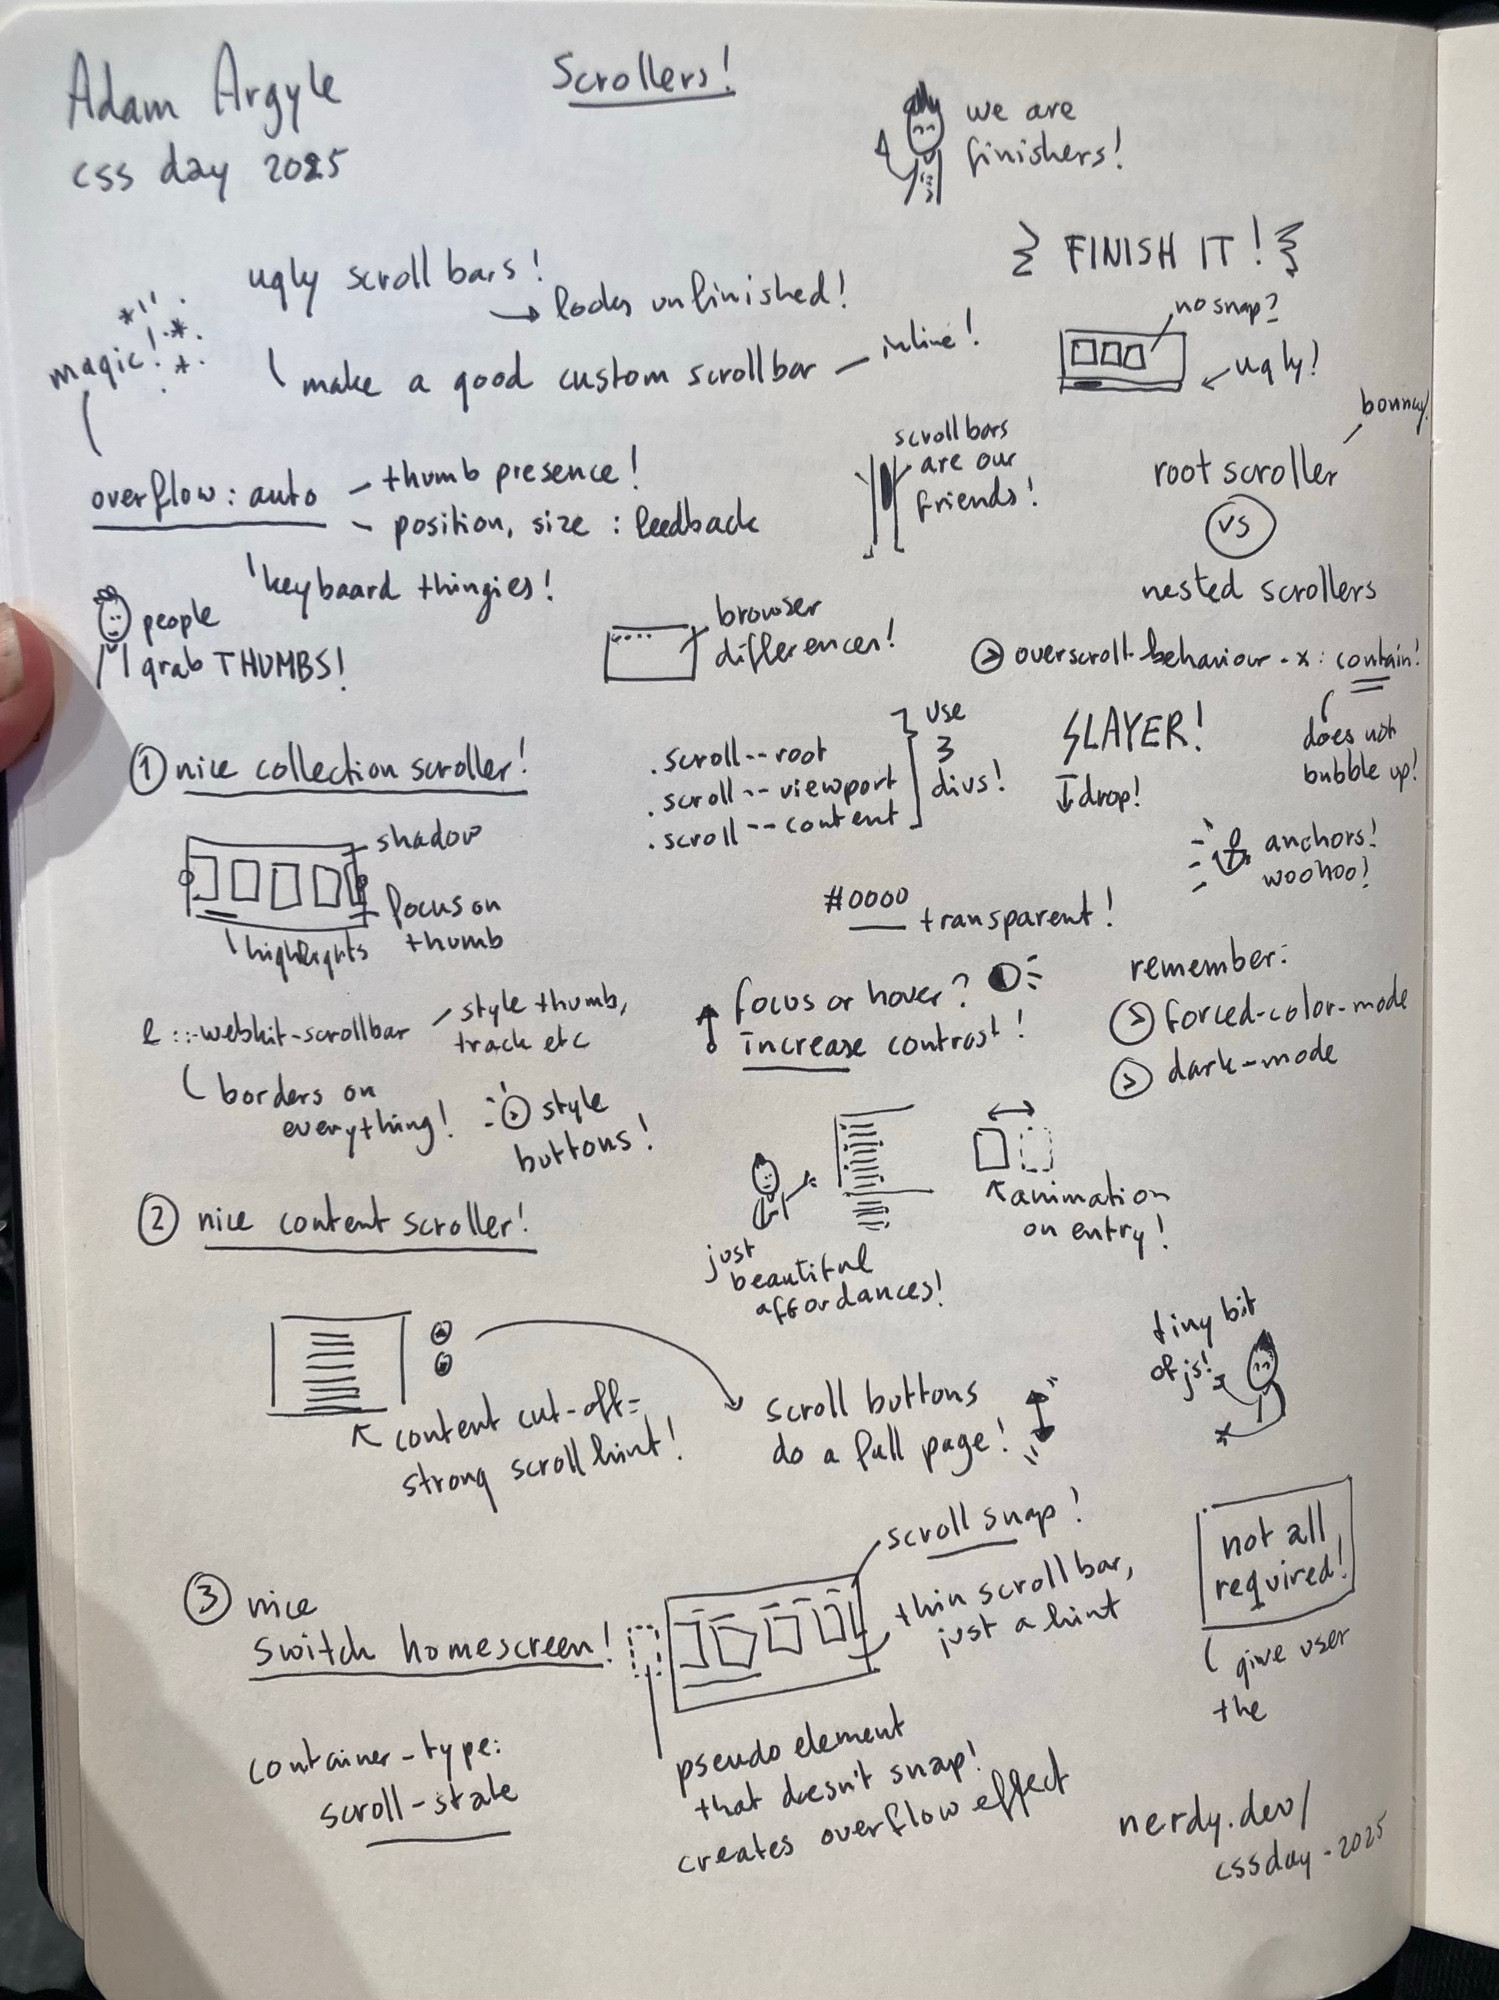 Adam Argyle
css day 2025
Scrollers!
we are
finishers!
FINISH IT!
ugly scrollbars!
looks unfinished!
magic!
make a good custom scrollbar
inline!
no snap?
ugly!
overflow: auto
thumb presence!
position, size : feedback
keyboard thingies!
scrollbars
are our
friends!
bouncy!
root scroller
vs
nested scrollers
people
grab THUMBS!
browser
differences!
overscroll-behaviour-x: contain!
does not
bubble up!
1 nice collection scroller!
shadow
focus on
thumb
highlights
.scroll--root
.scroll--viewport
.scroll--content
use
3
divs!
SLAYER!
drop!
anchors!
woohoo!
#0000
transparent!
::-webkit-scrollbar
style thumb,
track etc
borders on
everything!
style
buttons!
focus or hover?
increase contrast!
remember:
forced-color-mode
dark-mode
just
beautiful
affordances!
animation
on entry!
2 nice content scroller!
content cut-off=
strong scroll hint!
scroll buttons
do a full page!
tiny bit
of js!
3 nice
switch homescreen!
scroll snap!
thin scrollbar,
just a hint
not all
required!
give user
the
container-type:
scroll-state
pseudo element
that doesn't snap!
creates overflow effect
nerdy.dev/
cssday-2025